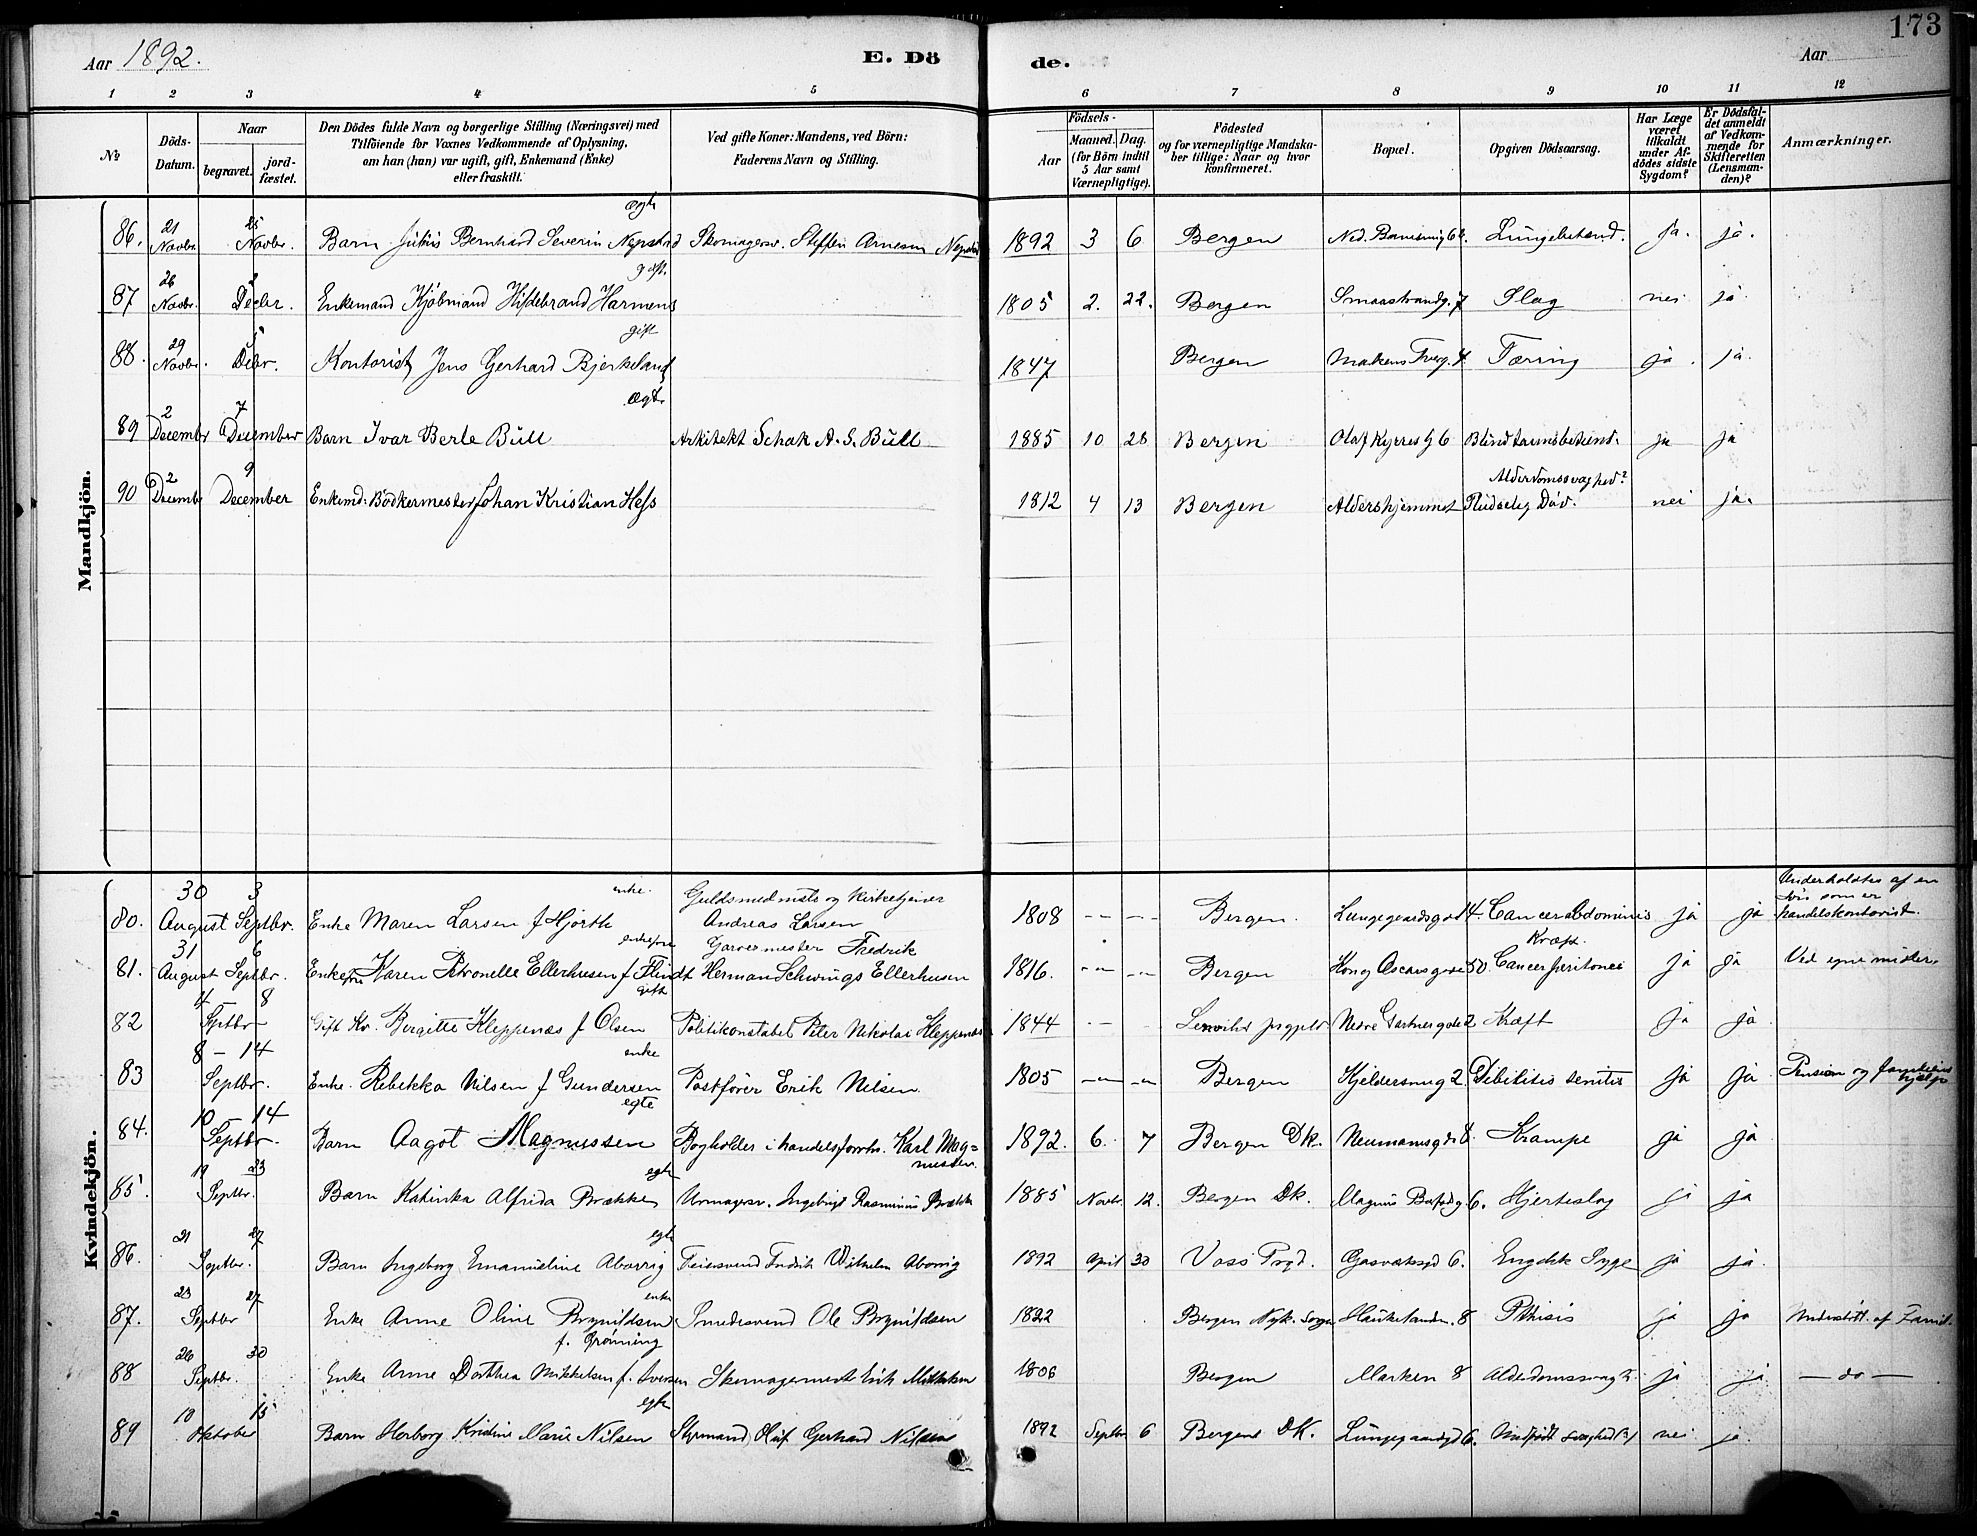 173
Aar 1892.
E. Dö
de.
Aar
1 2 3 4 5 6 7 8 9 10 11 12
№
Döds-Datum.
Naar
begravet.
jord-fæstet.
Den Dödes fulde Navn og borgerlige Stilling (Næringsvei) med
Tilföiende for Voxnes Vedkommende af Oplysning,
om han (hun) var ugift, gift, Enkemand (Enke)
eller fraskilt.
Ved gifte Koner: Mandens, ved Börn:
Faderens Navn og Stilling.
Födsels-
Aar
Maaned. Dag.
(for Börn indtil
5 Aar samt
Værnepligtige).
Födested
og for værnepligtige Mandska-
ber tillige: Naar og hvor
konfirmeret.
Bopæl.
Opgiven Dödsaarsag.
Har Læge
været
tilkaldt
under Af-
dödes sidste
Sygdom?
Er Dödsfal-
det anmeldt
af Vedkom-
mende for
Skifteretten
(Lensman-
den)?
Anmærkninger.
Mandkjön.
86. 21 Novbr. 25 Novbr. Barn Julius Bernhard Severin Nepstad ægte Skomagersv. Steffen Arnesen 1892 3 6 Bergen Lungebetænd. ja. ja.
87 26 Novbr. 2 Decbr. Enkemand Kjöbmand Hildebrand Harmens gift 1805 2. 22. Bergen Smaastrandg. 7 Slag nei ja
88. 29 Novbr. 5 Debr. Kontorist Jens Gerhard Bjerkeland gift 1847 Bergen Tæring ja ja
89 2 December 7 December Barn Ivar Berle Bull Ægte Arkitekt Schak A. S. Bull 1885 10 28 Bergen Olaf Kyrresg 6 Blindtarmsbetænd. ja ja
90 2 Decembr 9 December Enkemd: Bödkermester Johan Kristian Hess 1812 4 13 Bergen Aldershjemmet Alderdomssvaghed? Pludselig Död. nei ja.
Kvindekjön.
80. 30 August 3 Septbr. Enke Maren Larsen f Hjorth enke. Guldsmedmstr og Kirketjener Andreas Larsen 1808 Bergen. Lungegaardsgaden 4. Cancer abdominis ja ja Underholdtes af en sön som er handelskontorist.
81. 31 August 6 Septbr. Enkefru Karen Petronelle Ellerhusen f Flindt enkefru Garvermester Fredrik Herman Schwings Ellerhusen 1816. Bergen Kong Oscarsgade 50 Kræft. Cancer peritonei ja ja Ved egne midler.
82 4 8 Sptbr Gift Kv. Bergitte Kleppenæs f Olsen gift Politikonstabel Peter Nikolai Kleppenæs 1844 Nedre 2 Kræft ja ja
83 8 - 14 Septbr. Enke. Rebekka Nilsen f Gundersen enke Postförer Erik Nilsen 1805 Bergen Hjeldersmug 2. Debilitis senilis ja ja Pension og familiens hjælp
84. 10 14 Septbr. Barn Aagot Magnussen egte Bogholder i handelsforrtn. Karl Mag=nussen. 1892. 6. 7 Bergen Dk. Neumannsgd 8. Krampe ja ja
85. 19 23 Septbr. Barn Katinka Alfrida Brækken egte Urmagersv. Ingebrigt Rasminus Brækken 1885 Novbr. 12. Bergen Dk. Magnus Barfodg 6. Hjerteslag ja ja
86. 21 27 Septbr. Barn Ingeborg Emanueline Abovrig egte Feiersvend Fredrik Wilhelm Abovrig 1892 April 30 Voss Prgd. Gasværksgd 6. Engelsk Syge ja ja.
87. 23 27 Septbr Enke Anne Oline Brynildsen f. Grönning enke Smedesvend Ole Brynildsen 1822 Bergen Nyk. Sogn Haukelandsv. 8 Pthisis ja ja Understött. af Famil.
88 26 30 Septbr. Enke Anne Dorthea Mikkelsen f. Iversen Skomagermester Erik Mikkelsen 1806 Bergen Marken 8 Alderdomssvagh. ja ja — do —
89 10 15 Oktober Barn Herborg Kristine Marie Nilsen egte Styrmand Oluf Gerhard Nilsen 1892 Septbr 6 Bergen DK. Lungegaardsgd 6. Medfödt svaghed nei ja.